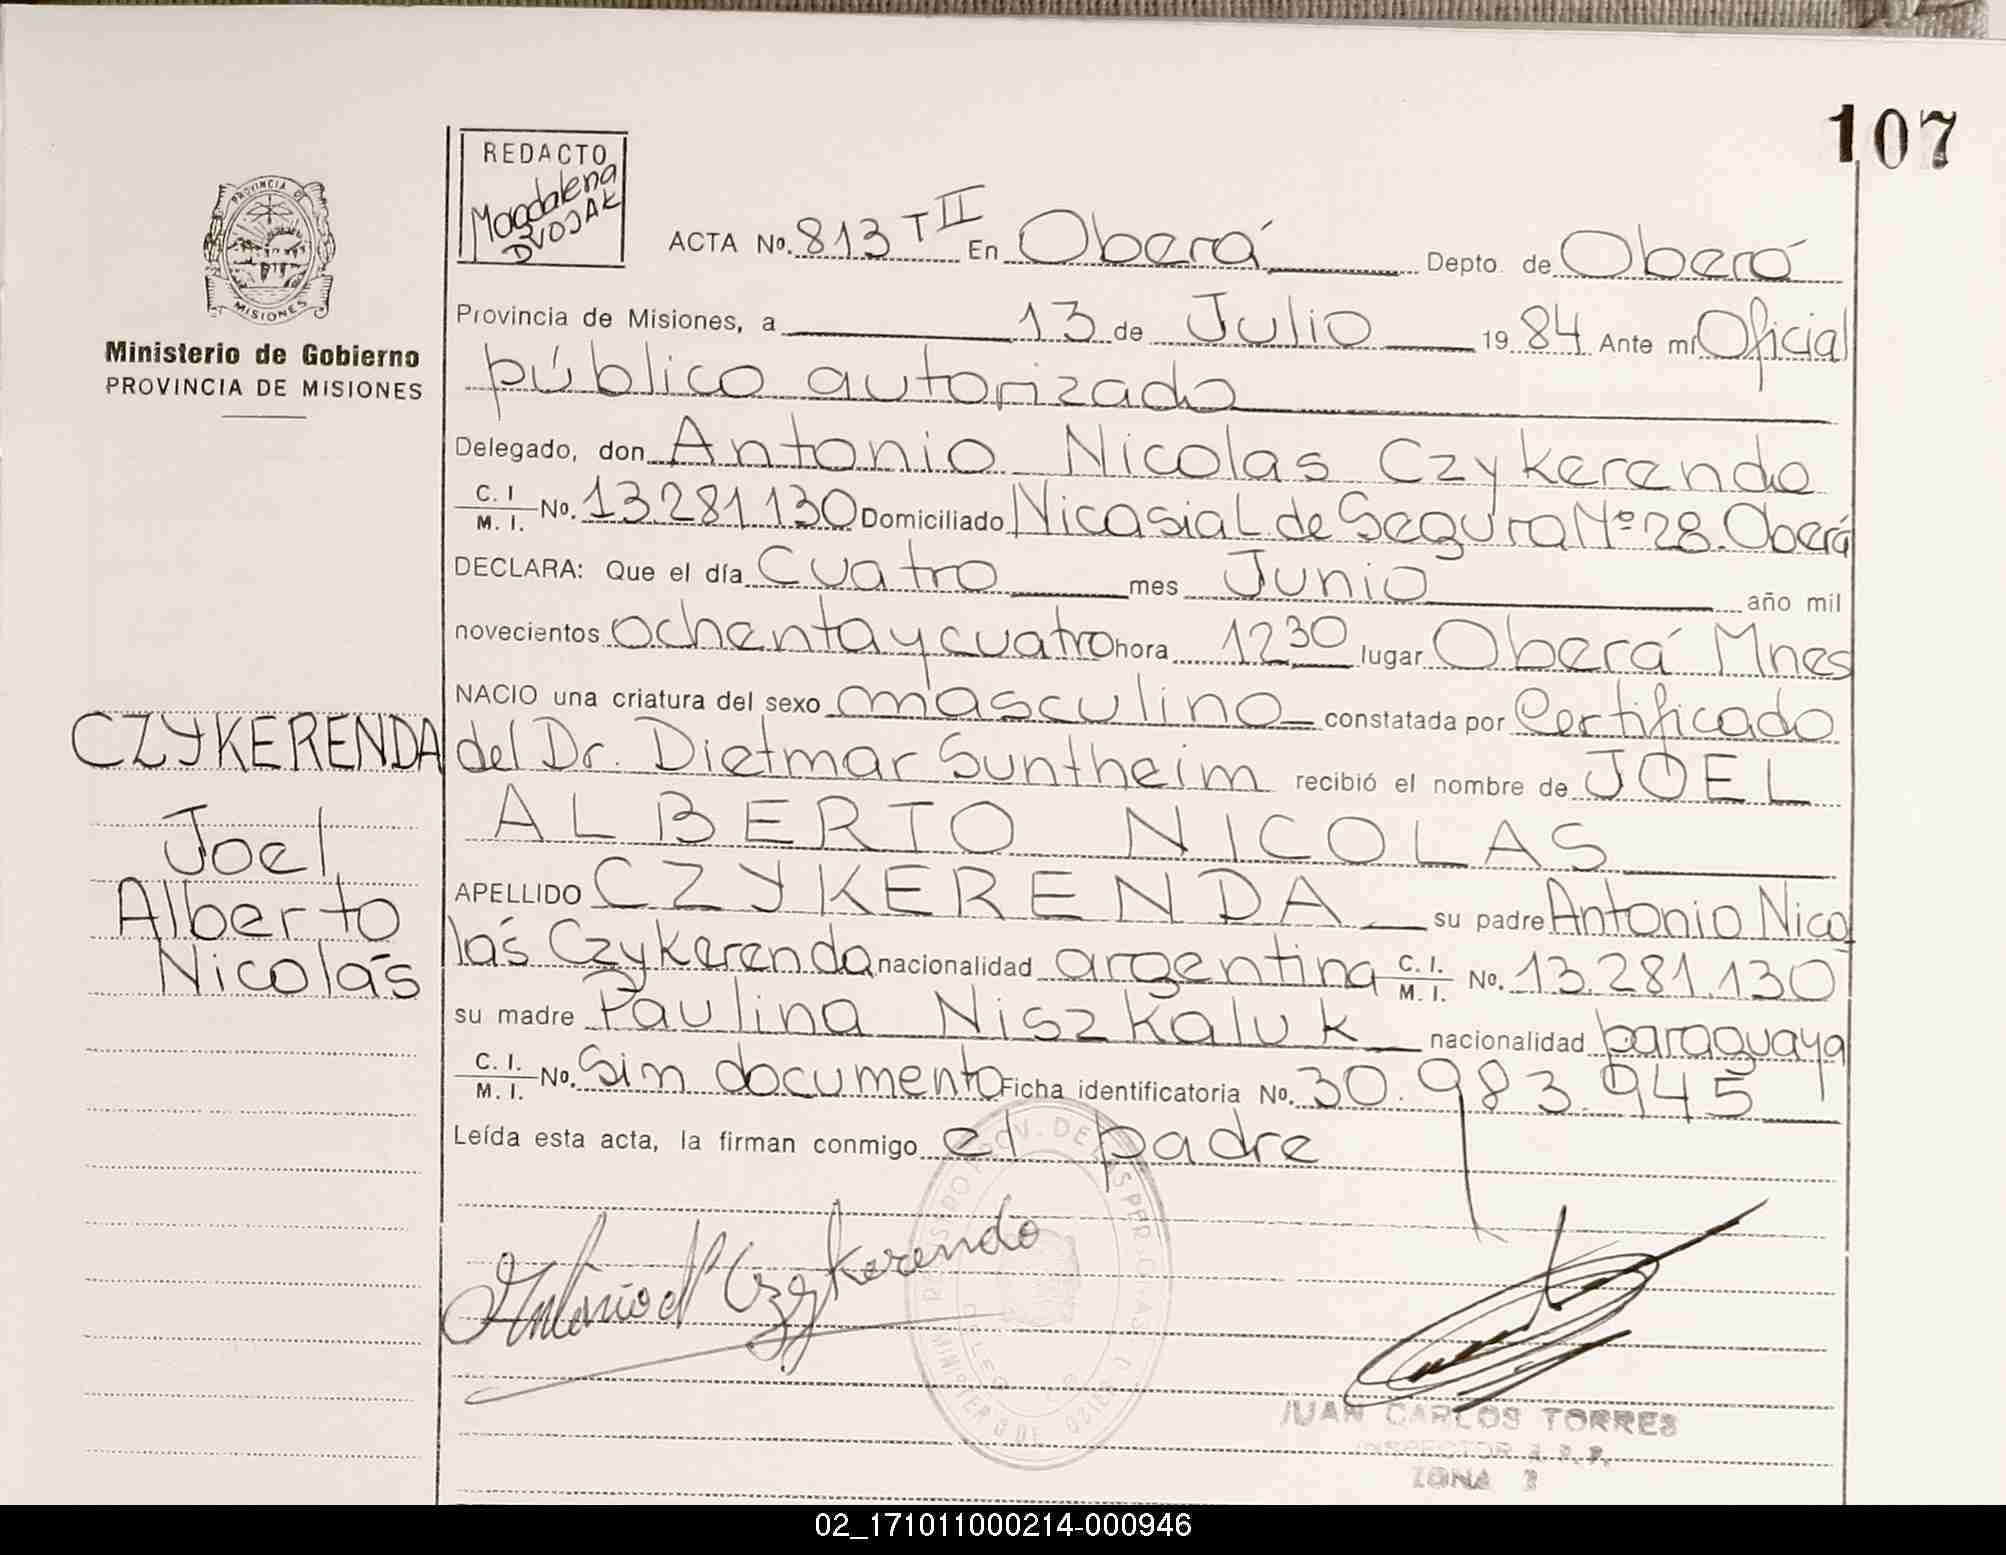 107
REDACTO
Magdalena
DVOJAK
PROVINCIA DE
MISIONES
Ministerio de Gobierno
PROVINCIA DE MISIONES
ACTA No. 813 T II En Oberá Depto. de Oberá
Provincia de Misiones, a 13 de Julio 19 84 Ante mí Oficial
público autorizado
Delegado, don Antonio Nicolas Czykerenda
C. I / M. I. No. 13.281.130 Domiciliado Nicasial de Segura Nº 28. Oberá
DECLARA: Que el día Cuatro mes Junio año mil
novecientos ochenta y cuatro hora 12 30 lugar Oberá Mnes
NACIO una criatura del sexo masculino constatada por Certificado
del Dr. Dietmar Suntheim recibió el nombre de JOEL
ALBERTO NICOLAS
APELLIDO CZYKERENDA su padre Antonio Nico
lás Czykerenda nacionalidad argentina C. I. / M. I. No. 13.281.130
su madre Paulina Niszkaluk nacionalidad paraguaya
C. I. / M. I. No. Sin documento Ficha identificatoria No. 30.983.945
Leída esta acta, la firman conmigo el padre
CZYKERENDA
Joel
Alberto
Nicolás
Antonio N Czykerenda
JUAN CARLOS TORRES
INSPECTOR
ZONA
02_171011000214-000946